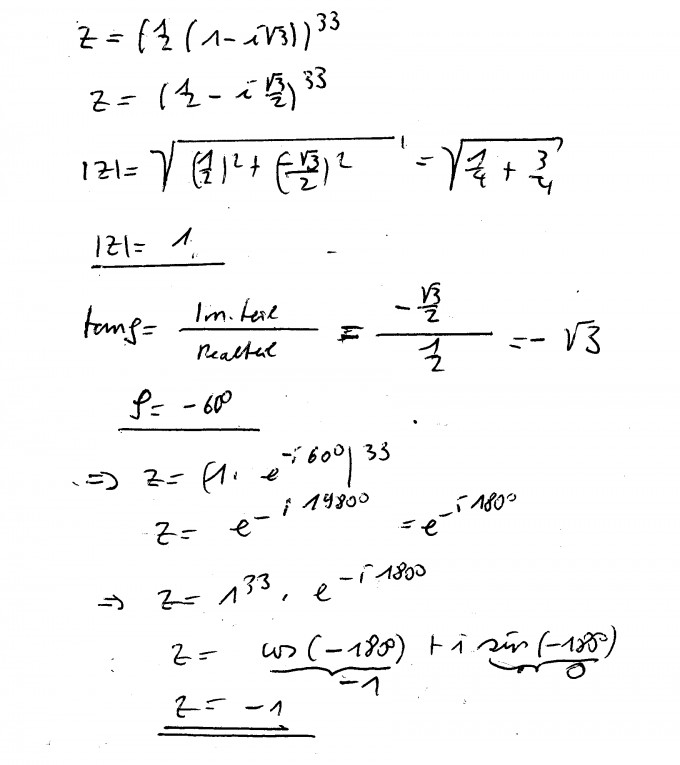 z = (1/2 (1 - i√3))^33
z = (1/2 - i √3/2)^33
|z| = √((1/2)^2 + (-√3/2)^2) = √(1/4 + 3/4)
|z| = 1
tan φ = Im.teil / Realteil = (-√3/2) / (1/2) = - √3
φ = -60°
⇒ z = (1 · e^(-i 60°))^33
z = e^(-i 1980°) = e^(-i 180°)
⇒ z = 1^33 · e^(-i 180°)
z = cos (-180°) + i sin (-180°)
-1 0
z = -1